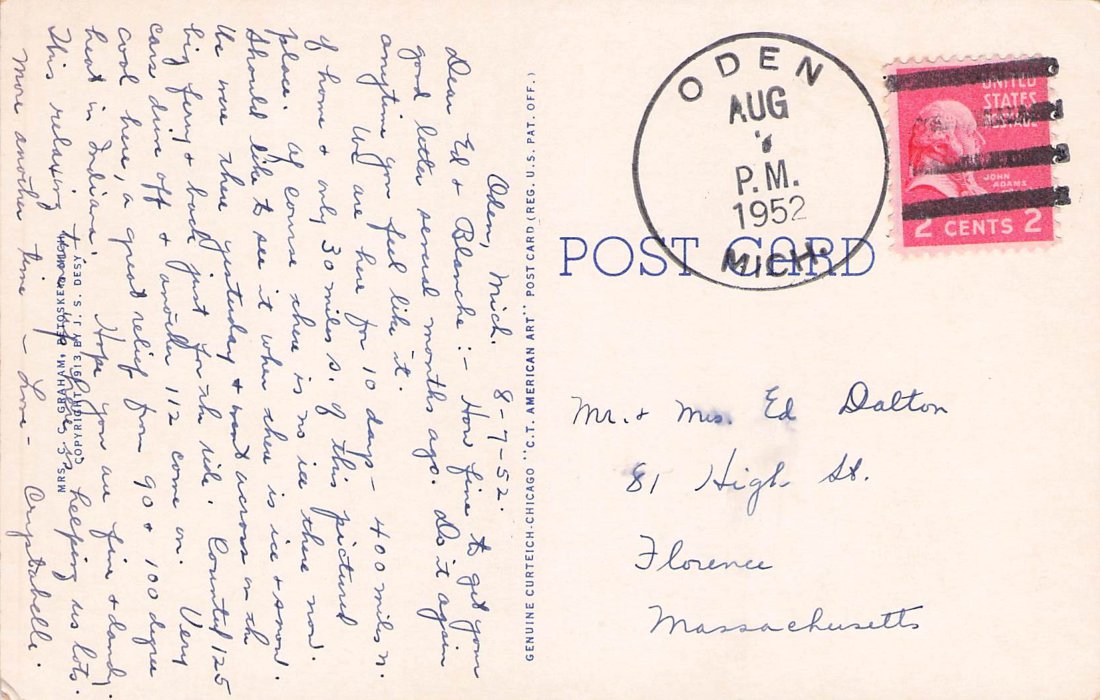 Oden, Mich. 8-7-52.
Dear Ed & Blanche:- How fine to get your
good letter several months ago. Do it again
anytime you feel like it.
We are here for 10 days - 400 miles n.
of home & only 30 miles s. of this pictured
place. Of course there is no ice there now.
Should like to see it when there is ice & snow.
We were there yesterday & went across on the
big ferry & back just for the ride. Counted 125
cars drive off & another 112 come on. Very
cool here, a great relief from 90 & 100 degree
heat in Indiana. Hope you are fine & dandy.
This relaxing & is helping us lots.
More another time - Love - Crystabelle.
MRS. C. GRAHAM, PETOSKEY
COPYRIGHT 1913 BY J. S. DESY
GENUINE CURTEICH-CHICAGO "C.T. AMERICAN ART" POST CARD (REG. U.S. PAT. OFF.)
POST CARD
ODEN
AUG
7
P.M.
1952
MICH.
UNITED
STATES
POSTAGE
JOHN
ADAMS
2 CENTS 2
Mr. & Mrs. Ed Dalton
81 High St.
Florence
Massachusetts